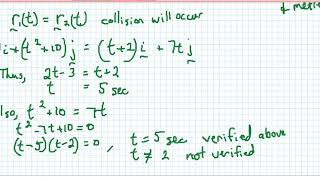 r₁(t) = r₂(t) collision will occur
& meet
i + (t² + 10) j = (t+2) i + 7t j
Thus, 2t - 3 = t + 2
t = 5 sec
lso, t² + 10 = 7t
t² - 7t + 10 = 0
(t - 5)(t - 2) = 0, t = 5 sec verified above
t ≠ 2 not verified